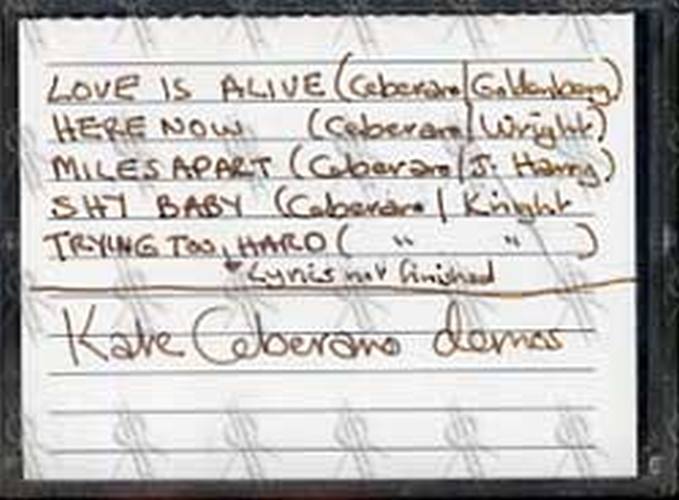 LOVE IS ALIVE (Ceberano/Goldenberg)
HERE NOW (Ceberano/Wright)
MILES APART (Ceberano/J. Harry)
SHY BABY (Ceberano/Knight
TRYING TOO HARD ( " " )
*Lyrics not finished
Kate Ceberano demos